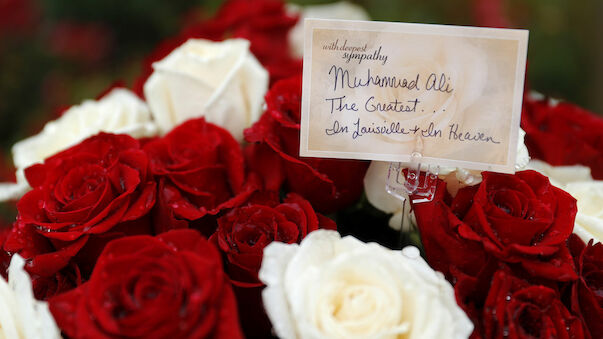 with deepest
sympathy
Muhammad Ali
The Greatest...
In Louisville & In Heaven